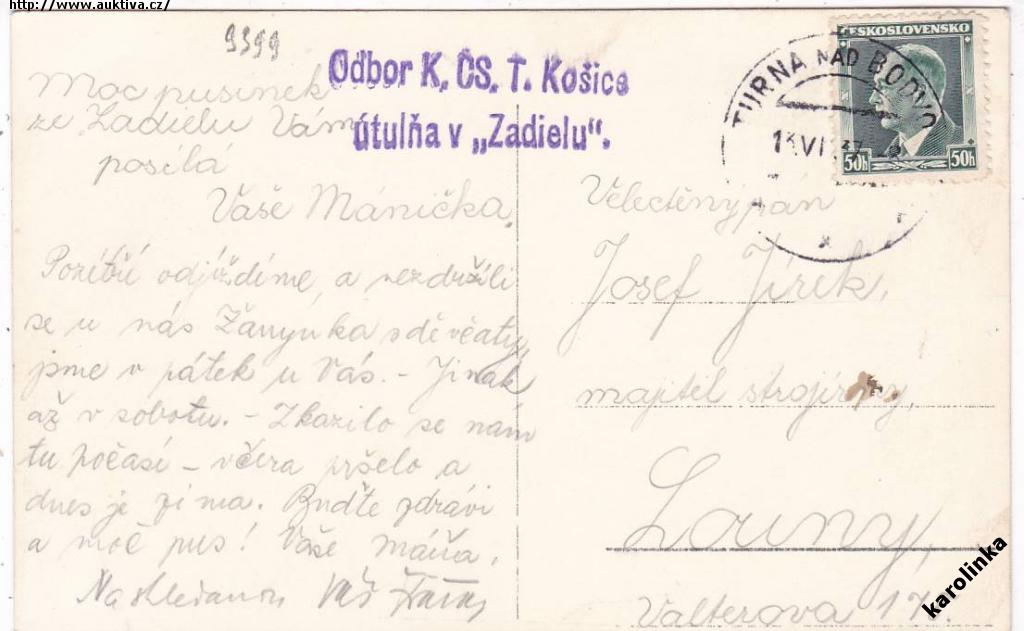 http://www.auktiva.cz/
9399
Odbor K. ČS. T. Košice
útulňa v „Zadielu".
ČESKOSLOVENSKO
50h 50h
TURNA NAD BODVO
13 VI 37
Moc pusinek
ze Zadielu Vám
posílá
Vaše Mánička.
Pozítří odjíždíme, a nezdrželi
se u nás Žanynka s děvčaty,
jsme v pátek u Vás. – Jinak
až v sobotu. – Zkazilo se nám
tu počasí – včera pršelo a
dnes je zima. Buďte zdrávi
a moč pus! Vaše Máňa.
Na shledanou Váš
Velectěný pán
Josef Jírek,
majitel strojírny,
Louny,
Valterova 17.
karolinka